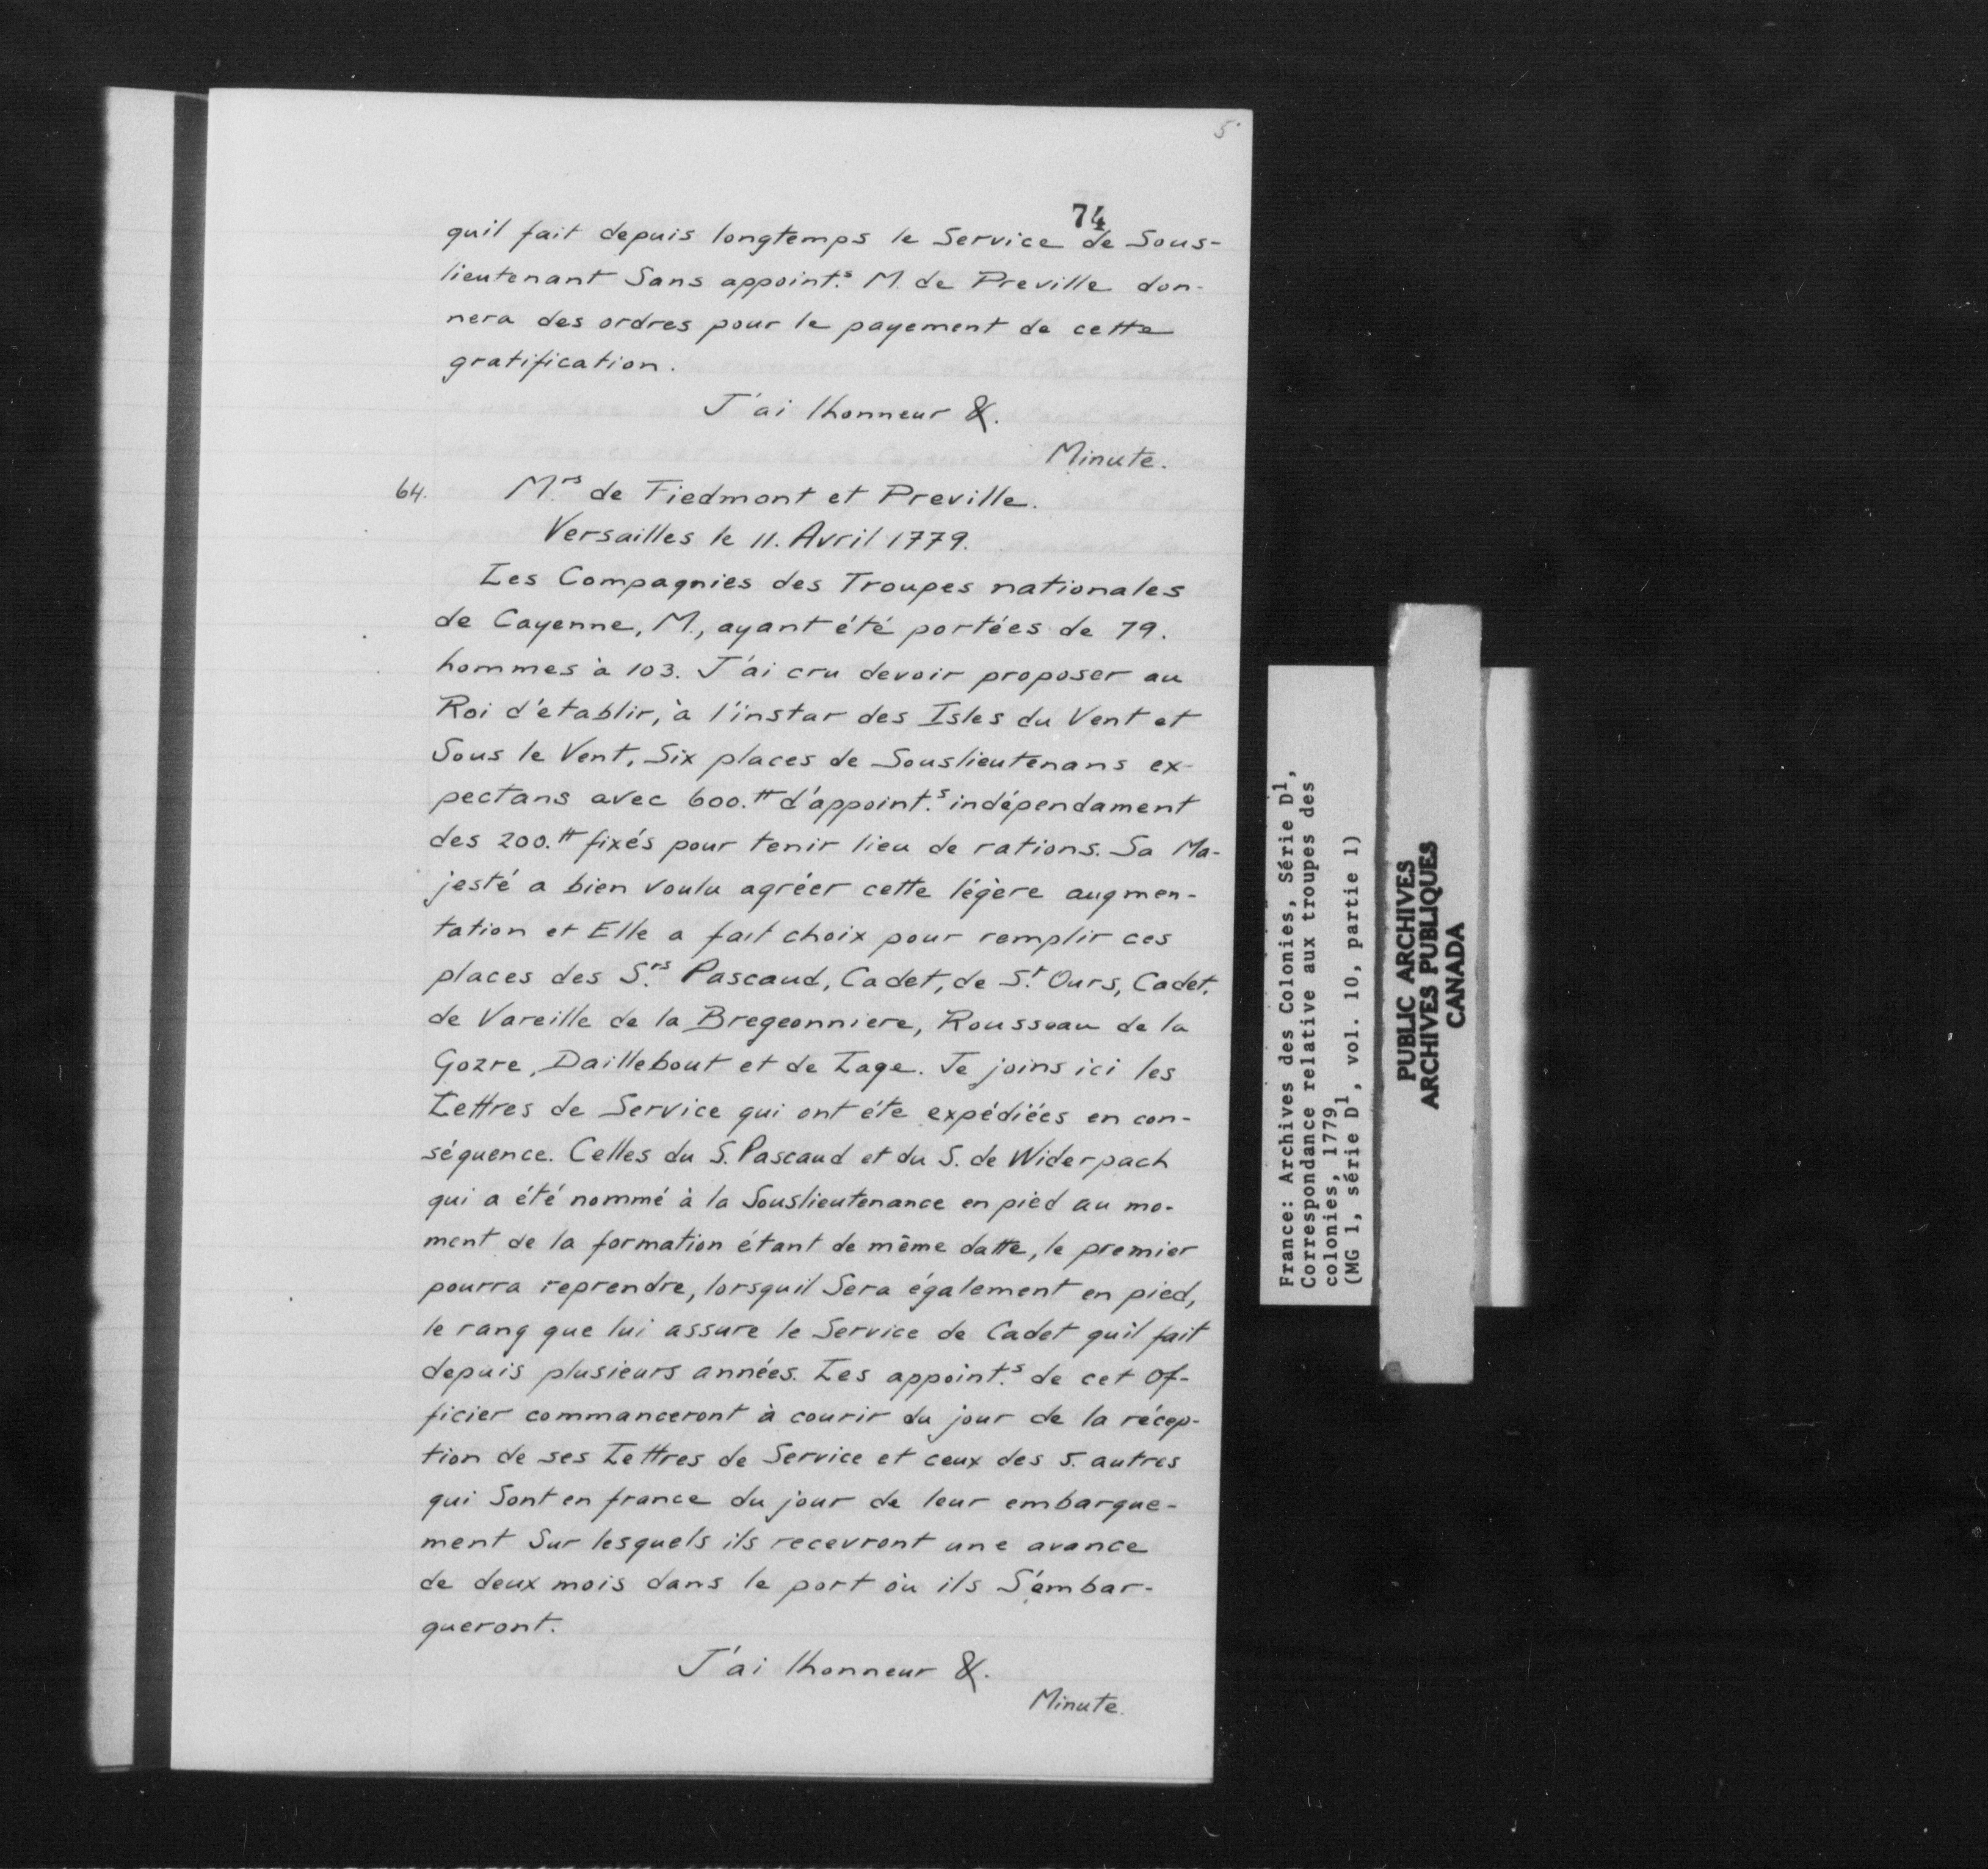 5
74
quil fait depuis longtemps le Service de Sous-
lieutenant Sans appoint.s M. de Preville don-
nera des ordres pour le payement de cette
gratification.
J'ai lhonneur &.
Minute.
64. M.rs de Fiedmont et Preville.
Versailles le 11. Avril 1779.
Les Compagnies des Troupes nationales
de Cayenne, M., ayant été portées de 79.
hommes à 103. J'ai cru devoir proposer au
Roi d'établir, à l'instar des Isles du Vent et
Sous le Vent, Six places de Souslieutenans ex-
pectans avec 600.tt d'appoint.s indépendament
des 200.tt fixés pour tenir lieu de rations. Sa Ma-
jesté a bien voulu agréer cette légère augmen-
tation et Elle a fait choix pour remplir ces
places des S.rs Pascaud, Cadet, de S.t Ours, Cadet,
de Vareille de la Bregeonniere, Rousseau de la
Gozre, Daillebout et de Lage. Je joins ici les
Lettres de Service qui ont éte expédiées en con-
séquence. Celles du S. Pascaud et du S. de Widerpach
qui a été nommé à la Souslieutenance en pied au mo-
ment de la formation étant de même datte, le premier
pourra reprendre, lorsquil Sera également en pied,
le rang que lui assure le Service de Cadet qu'il fait
depuis plusieurs années. Les appoint.s de cet Of-
ficier commanceront à courir du jour de la récep-
tion de ses Lettres de Service et ceux des 5. autres
qui Sont en france du jour de leur embarque-
ment Sur lesquels ils recevront une avance
de deux mois dans le port où ils S'embar-
queront.
J'ai lhonneur &.
Minute.
France: Archives des Colonies, Série D1,
Correspondance relative aux troupes des
colonies, 1779
(MG 1, série D1, vol. 10, partie 1)
PUBLIC ARCHIVES
ARCHIVES PUBLIQUES
CANADA